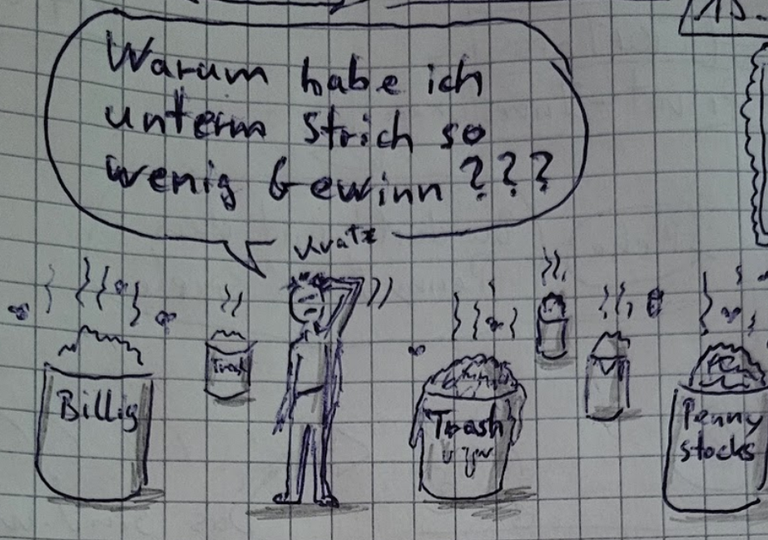 Warum habe ich
unterm Strich so
wenig Gewinn ???
kratz
Billig
Trash
Trash
Penny
stocks